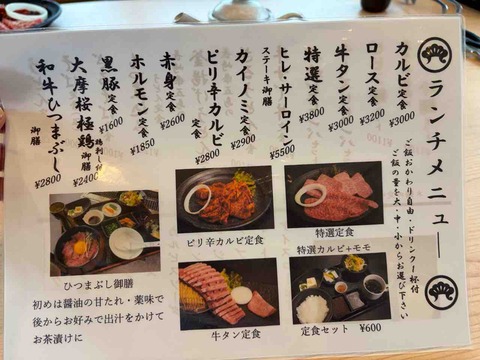 ランチメニュー
ご飯おかわり自由・ドリンク一杯付
ご飯の量を大・中・小からお選び下さい
カルビ定食 ¥3000
ロース定食 ¥3200
牛タン定食 ¥3000
特選定食 ¥3800
ヒレ・サーロイン ¥5500
ステーキ御膳
カイノミ定食 ¥2900
ピリ辛カルビ ¥2800
赤身定食 ¥2600
ホルモン定食 ¥1850
黒豚定食 ¥1600
大摩桜極鶏御膳 ¥2400
鶏刺し付
和牛ひつまぶし御膳 ¥2800
ピリ辛カルビ定食
特選定食
特選カルビ+モモ
ひつまぶし御膳
初めは醤油の甘たれ・薬味で
後からお好みで出汁をかけて
お茶漬けに
牛タン定食
定食セット ¥600